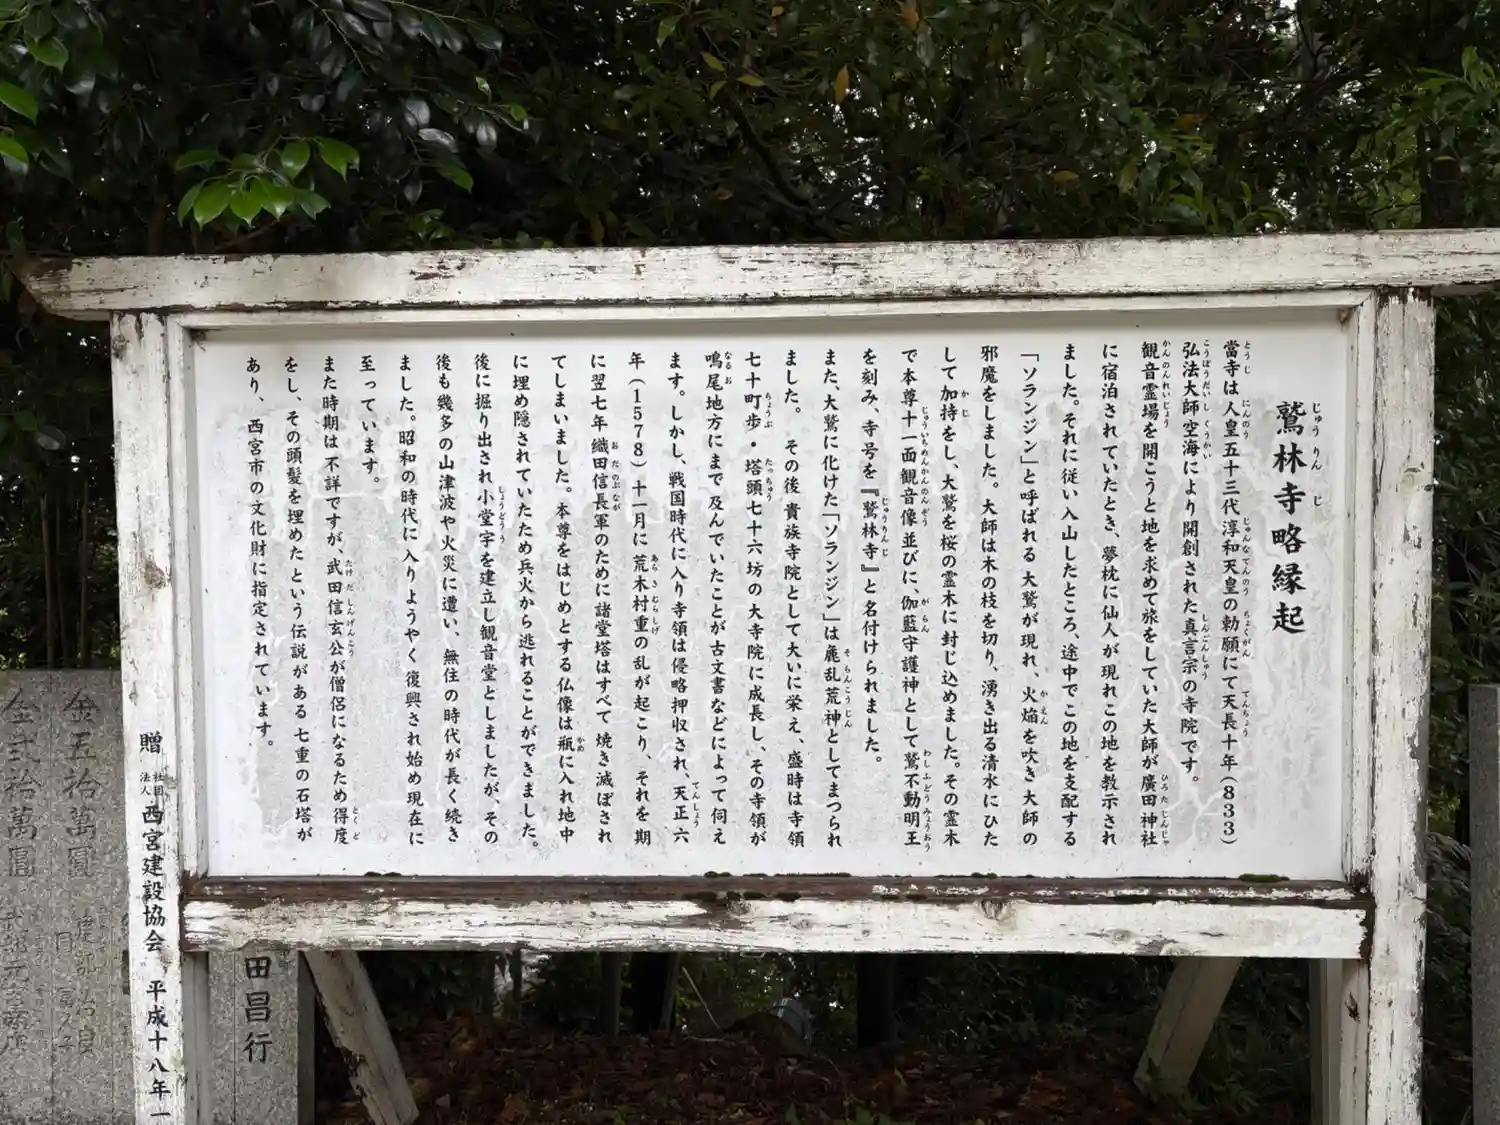 鷲林寺略縁起
當寺は人皇五十三代淳和天皇の勅願にて天長十年(833)
弘法大師空海により開創された真言宗の寺院です。
観音霊場を開こうと地を求めて旅をしていた大師が廣田神社
に宿泊されていたとき、夢枕に仙人が現れこの地を教示され
ました。それに従い入山したところ、途中でこの地を支配する
「ソランジン」と呼ばれる大鷲が現れ、火焔を吹き大師の
邪魔をしました。大師は木の枝を切り、湧き出る清水にひた
して加持をし、大鷲を桜の霊木に封じ込めました。その霊木
で本尊十一面観音像並びに、伽藍守護神として鷲不動明王
を刻み、寺号を『鷲林寺』と名付けられました。
また、大鷲に化けた「ソランジン」は麁乱荒神としてまつられ
ました。その後貴族寺院として大いに栄え、盛時は寺領
七十町歩・塔頭七十六坊の大寺院に成長し、その寺領が
鳴尾地方にまで及んでいたことが古文書などによって伺え
ます。しかし、戦国時代に入り寺領は侵略押収され、天正六
年(1578)十一月に荒木村重の乱が起こり、それを期
に翌七年織田信長軍のために諸堂塔はすべて焼き滅ぼされ
てしまいました。本尊をはじめとする仏像は瓶に入れ地中
に埋め隠されていたため兵火から逃れることができました。
後に掘り出され小堂宇を建立し観音堂としましたが、その
後も幾多の山津波や火災に遭い、無住の時代が長く続き
ました。昭和の時代に入りようやく復興され始め現在に
至っています。
また時期は不詳ですが、武田信玄公が僧侶になるため得度
をし、その頭髪を埋めたという伝説がある七重の石塔が
あり、西宮市の文化財に指定されています。
贈 社団法人 西宮建設協会 平成十八年一
田昌行
金五拾萬圓
金弐拾萬圓